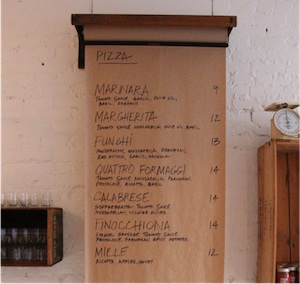 PIZZA
MARINARA 9
TOMATO SAUCE, GARLIC, OLIVE OIL,
BASIL, OREGANO
MARGHERITA 12
TOMATO SAUCE MOZZARELLA OLIVE OIL BASIL
FUNGHI 13
MUSHROOMS, MOZZARELLA, PARMESAN,
GARLIC,
QUATTRO FORMAGGI 14
TOMATO SAUCE MOZZARELLA PARMESAN,
PROVOLONE, RICOTTA, BASIL
CALABRESE 14
SOPPRESSATA TOMATO SAUCE
MOZZARELLA, OLIVES
FINOCCHIONA 14
FENNEL SAUSAGE TOMATO SAUCE
PROVOLONE PARMESAN
MIELE 12
RICOTTA APPLES, HONEY